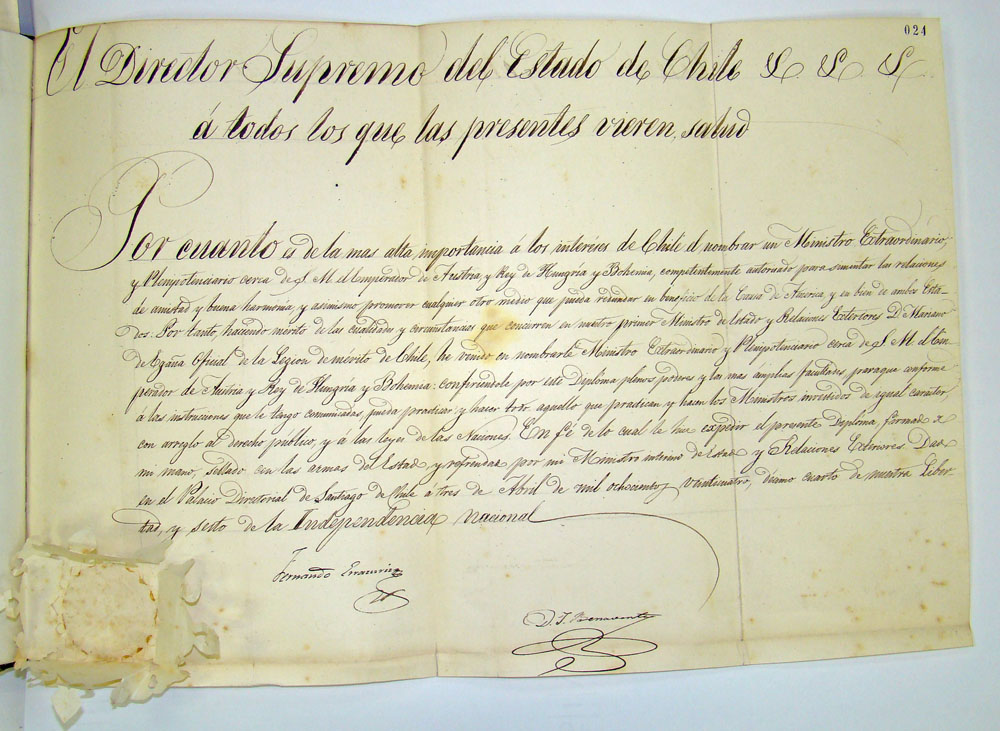 024
El Director Supremo del Estado de Chile &. &. &.
á todos los que las presentes vieren, salud
Por cuanto es de la mas alta importancia á los interéses de Chile el nombrar un Ministro Extraordinário,
y Plenipotenciario cerca de S. M. el Emperador de Austria, y Rey de Hungría y Bohemia, competentemente autorizado para cimentar las relaciones
de amistad y buena harmonía, y asimismo promover cualquier otro medio que pueda redundar en beneficio de la Causa de America, y en bien de ambos Esta-
dos. Por tanto, haciendo mérito de las cualidades y circunstancias que concurren en nuestro primer Ministro de Estado y Relaciones Exteriores D. Mariano
de Egaña Oficial de la Legion de mérito de Chile, he venido en nombrarle Ministro Extraordinario y Plenipotenciario cerca de S. M. el Em-
perador de Austria y Rey de Hungría y Bohemia: confiriendole por este Diplóma plenos poderes y las mas amplias facultades, para que conforme
a las instrucciones que le tengo comunicadas, pueda practicar y hacer todo aquello que practican y hacen los Ministros investidos de igual caracter,
con arreglo al derecho publico, y á las leyes de las Naciones. En fé de lo cual le he expedir el presente Diploma, firmado de
mi mano, sellado con las armas del Estado y refrendado por mi Ministro interino de Estado y Relaciones Exteriores. Dado
en el Palacio Directorial de Santiago de Chile á tres de Abril de mil ochocientos veinticuatro, décimo cuarto de nuestra Liber-
tad, y sesto de la Independencia nacional
Fernando Errazuriz
D. J. Benavente